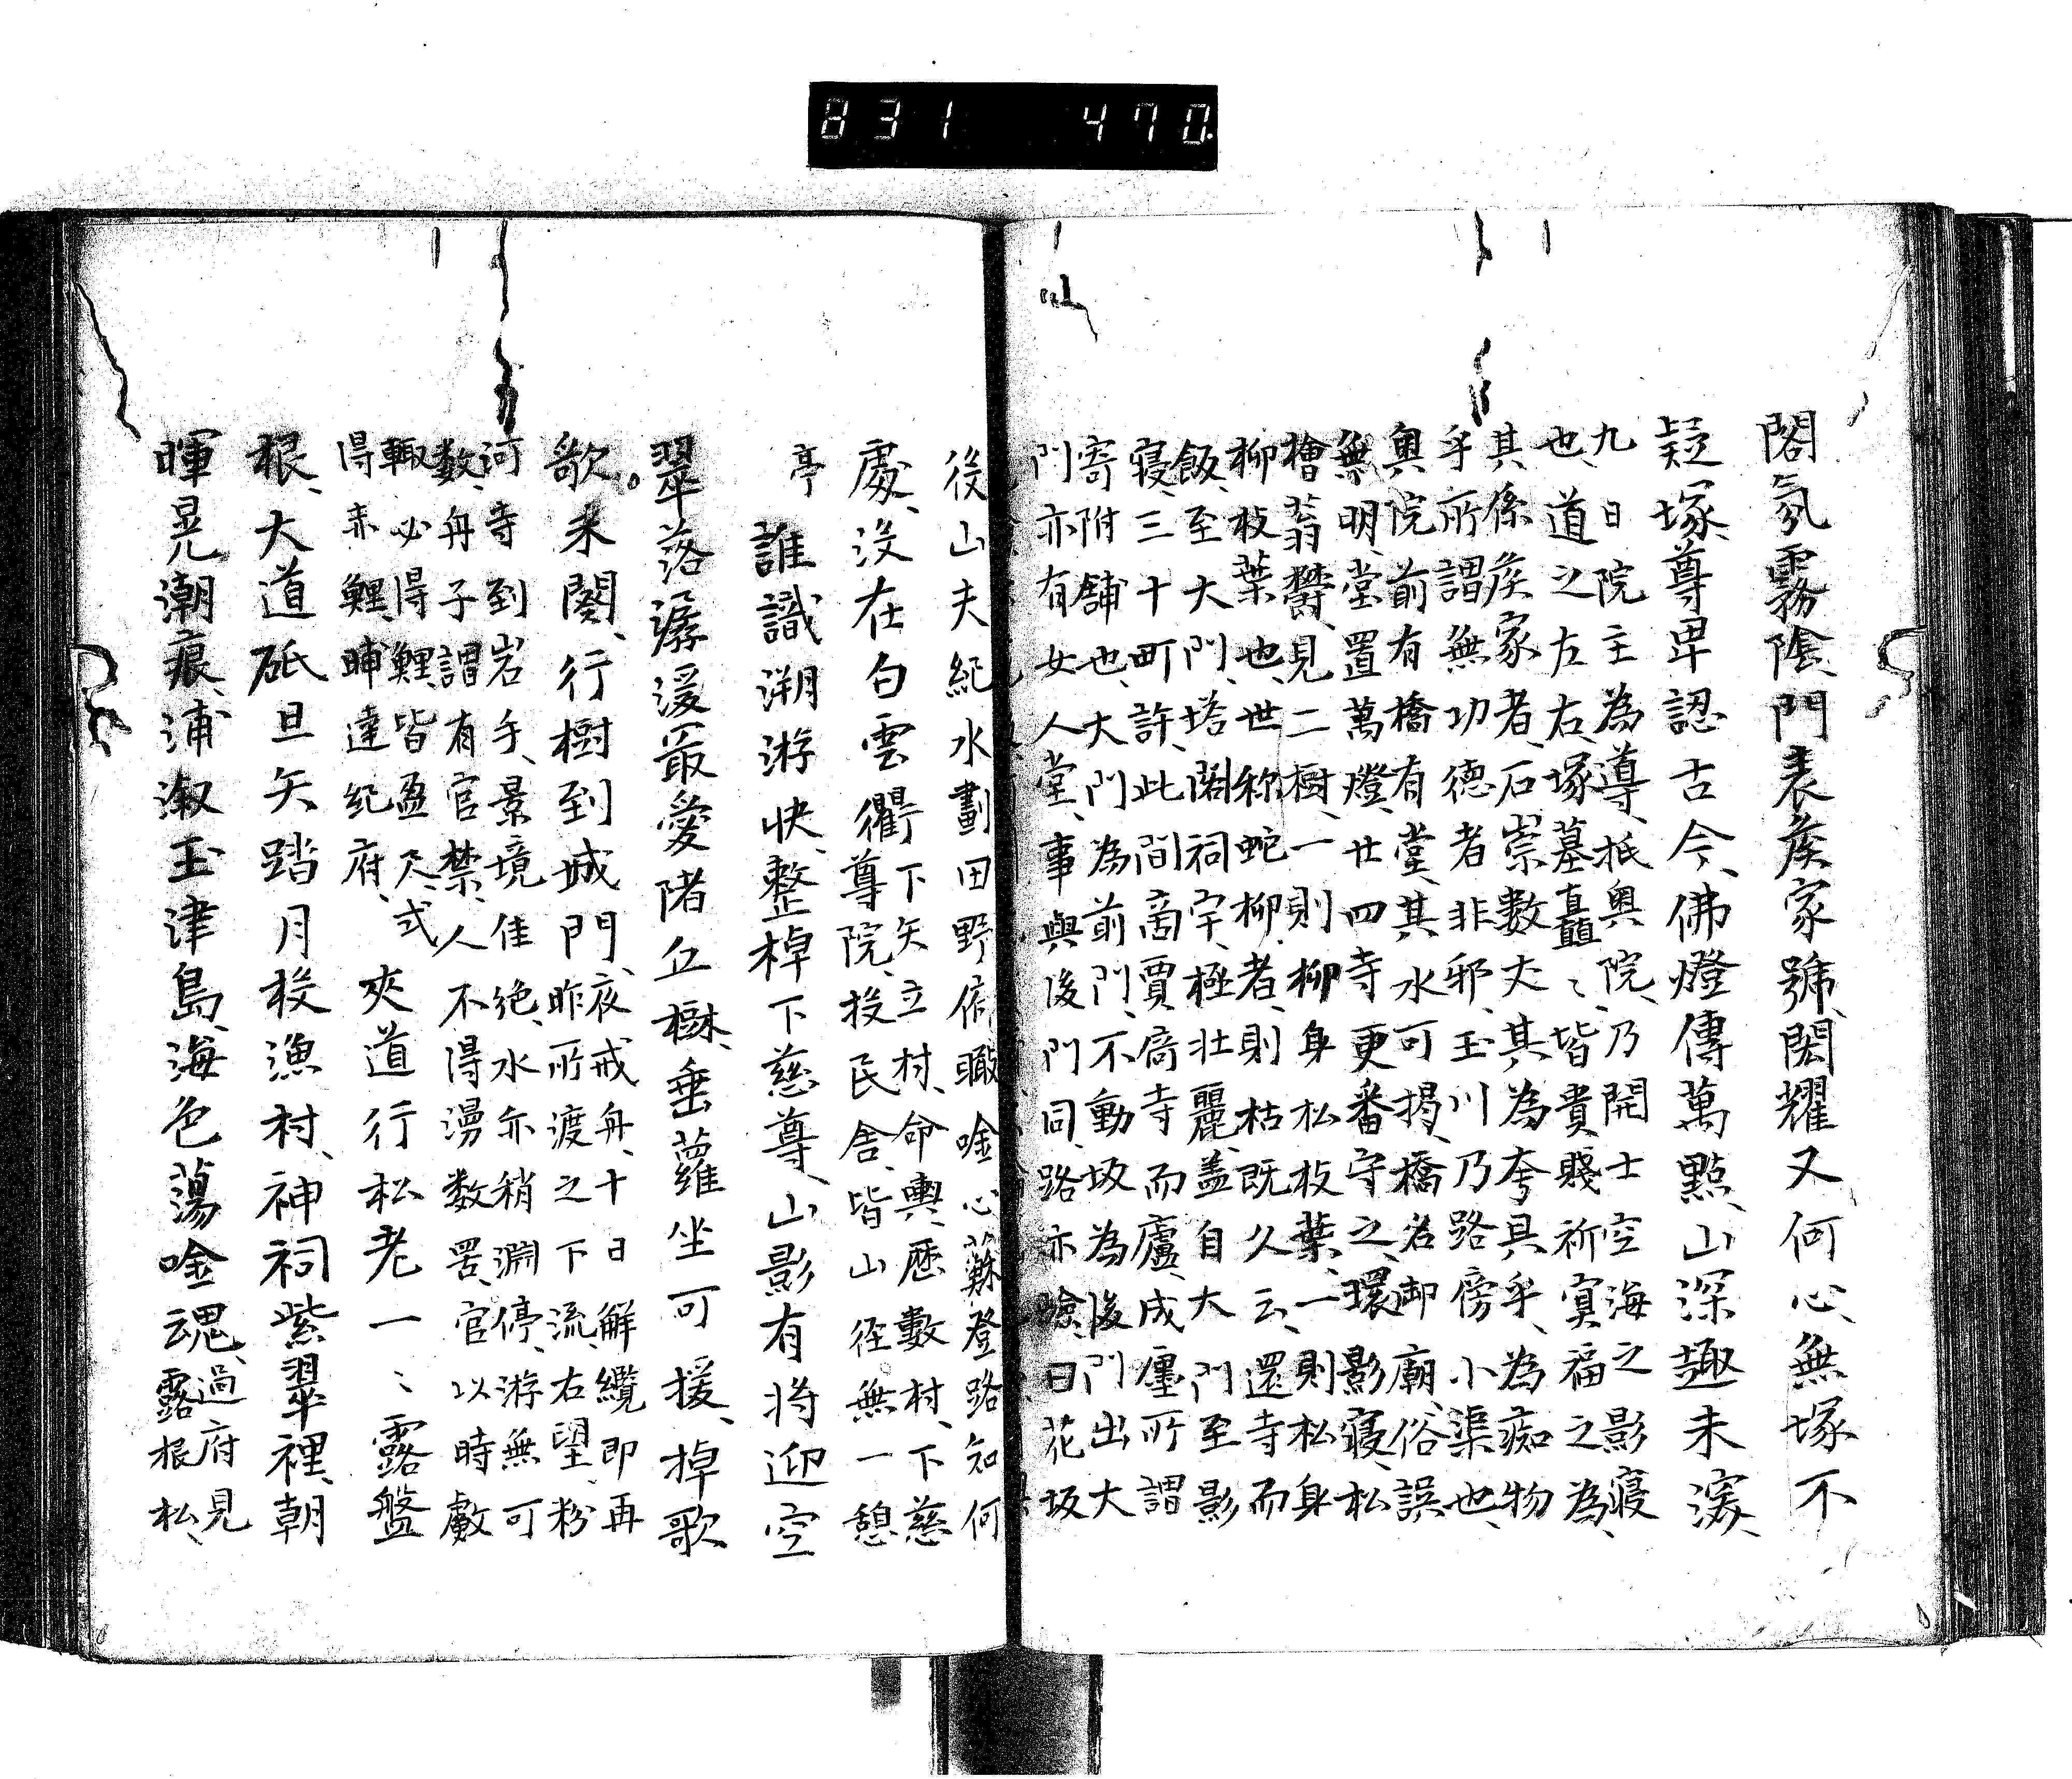 831 470.
閣氛霧陰、門表矦家號、閎耀又何心、無塚不
疑塚、尊卑認古今、佛燈傳萬點、山深趣未深、
九日院主為導、抵奥院、乃開士空海之影寝
也、道之左右、塚墓矗〻、皆貴賤祈冥福之為、
其係矦家者、石崇數丈、其為夸具乎、為痴物
乎、所謂無功德者非邪、玉川乃路傍小渠也、
奥院前有橋有堂、其水可掲、橋名御廟、俗誤
無明、堂置萬燈、廿四寺更番守之、環影寝、松
檜蓊欝、見二樹、一則柳身松枝葉、一則松身
柳枝葉也、世称蛇柳者、則枯既久云、還寺而
飯、至大門、塔閣祠宇、極壮麗、盖自大門至影
寝、三十町許、此間商賈䆠寺而廬、成廛所謂
寄附舗也、大門為前門、不動坂為後門、出大
門亦有女人堂、事與後門同、路亦嶮、曰花坂
後山夫紀水劃田野俯瞰唫心蘇登路知何
處、没在白雲衢下矢立村、命輿、歴數村、下慈
尊院、投民舎、皆山徑無一憩
亭 誰識溯游快、整棹下慈尊、山影有将迎空
翠落潺湲最愛陼丘樾、垂蘿坐可援、棹歌
歌未闋、行樹到城門、夜戒舟、十日解纜即再
昨所渡之下流、右望粉
河寺到岩手、景境佳絶、水亦稍淵停、游無可
数、舟子謂有官禁、人不得漫数罟、官以時䱷
輙必得鯉、皆盈尺、式
得赤鯉、晡達紀府、夾道行松老一〻露盤
根、大道砥且矢踏月投漁村、神祠紫翠裡、朝
暉晃潮痕、浦溆玉津島、海色蕩唫魂、過府見
露根松、